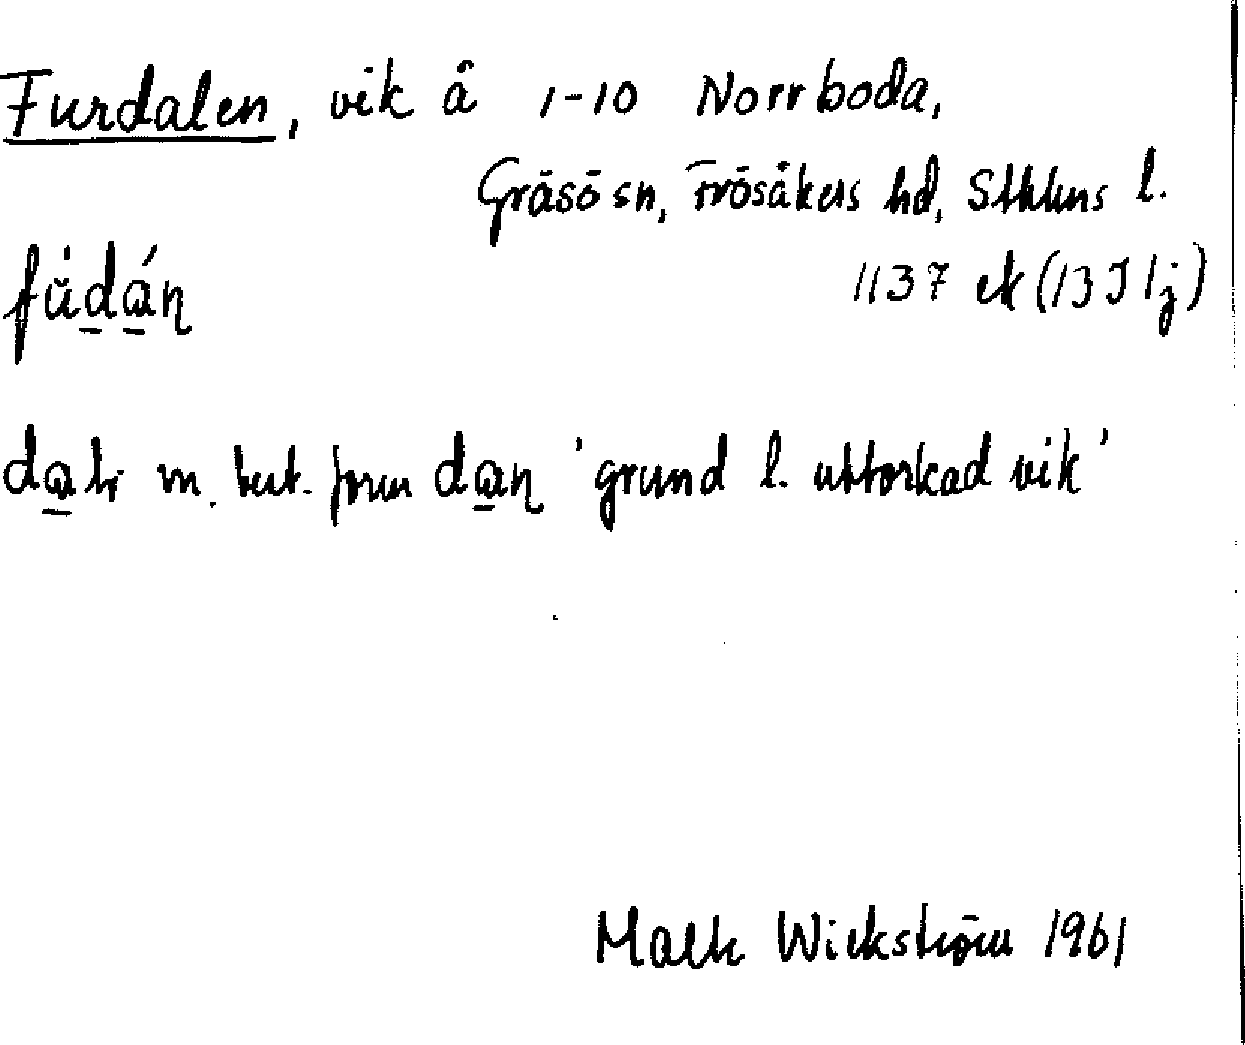 Furdalen, vik å 1-10 Norrboda,
Gräsö sn, Frösåkers hd, Sthlms l.
1137 ek (13 I 1j)
fŭ̀dán
m. best. form dan 'grund l. uttorkad vik'
Wickström 1961